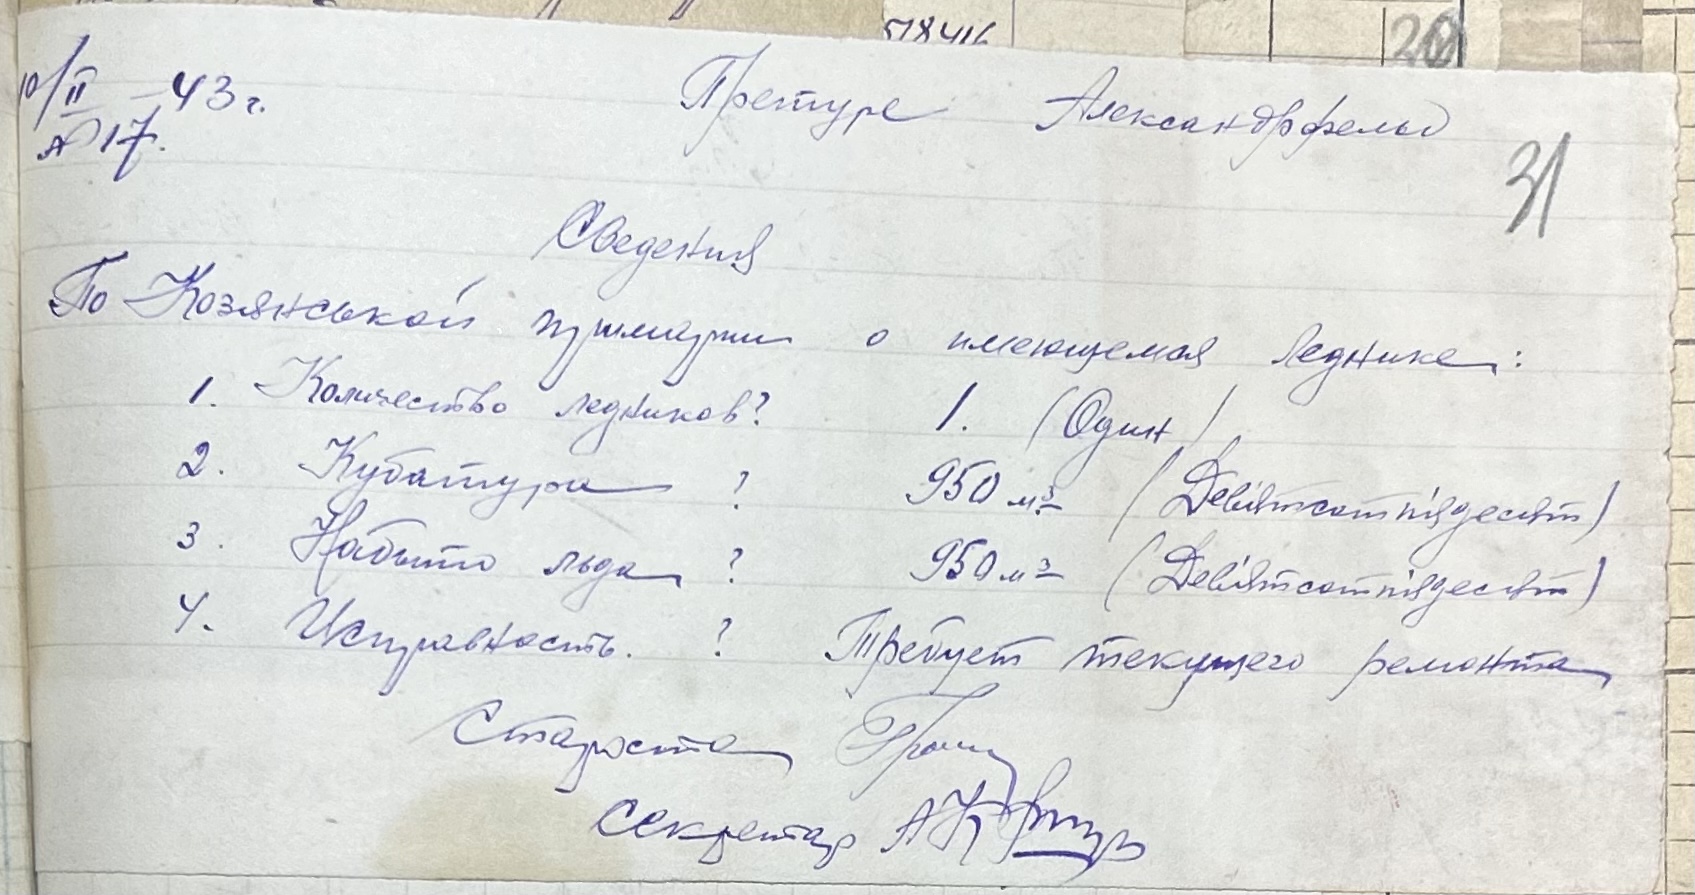 518416
20
10/II – 43 г. Претуре Александрфельд
№ 17.
31
Сведения
По Козянськой примарии о имеющемся леднике:
1. Количество ледников? 1. (Один)
2. Кубатура ? 950 м3 (Девiятсотпiядесят)
3. Набито льда ? 950 м3 (Девiятсотпiядесят)
4. Исправность. ? Требует текущего ремонта
Староста
Секретар А